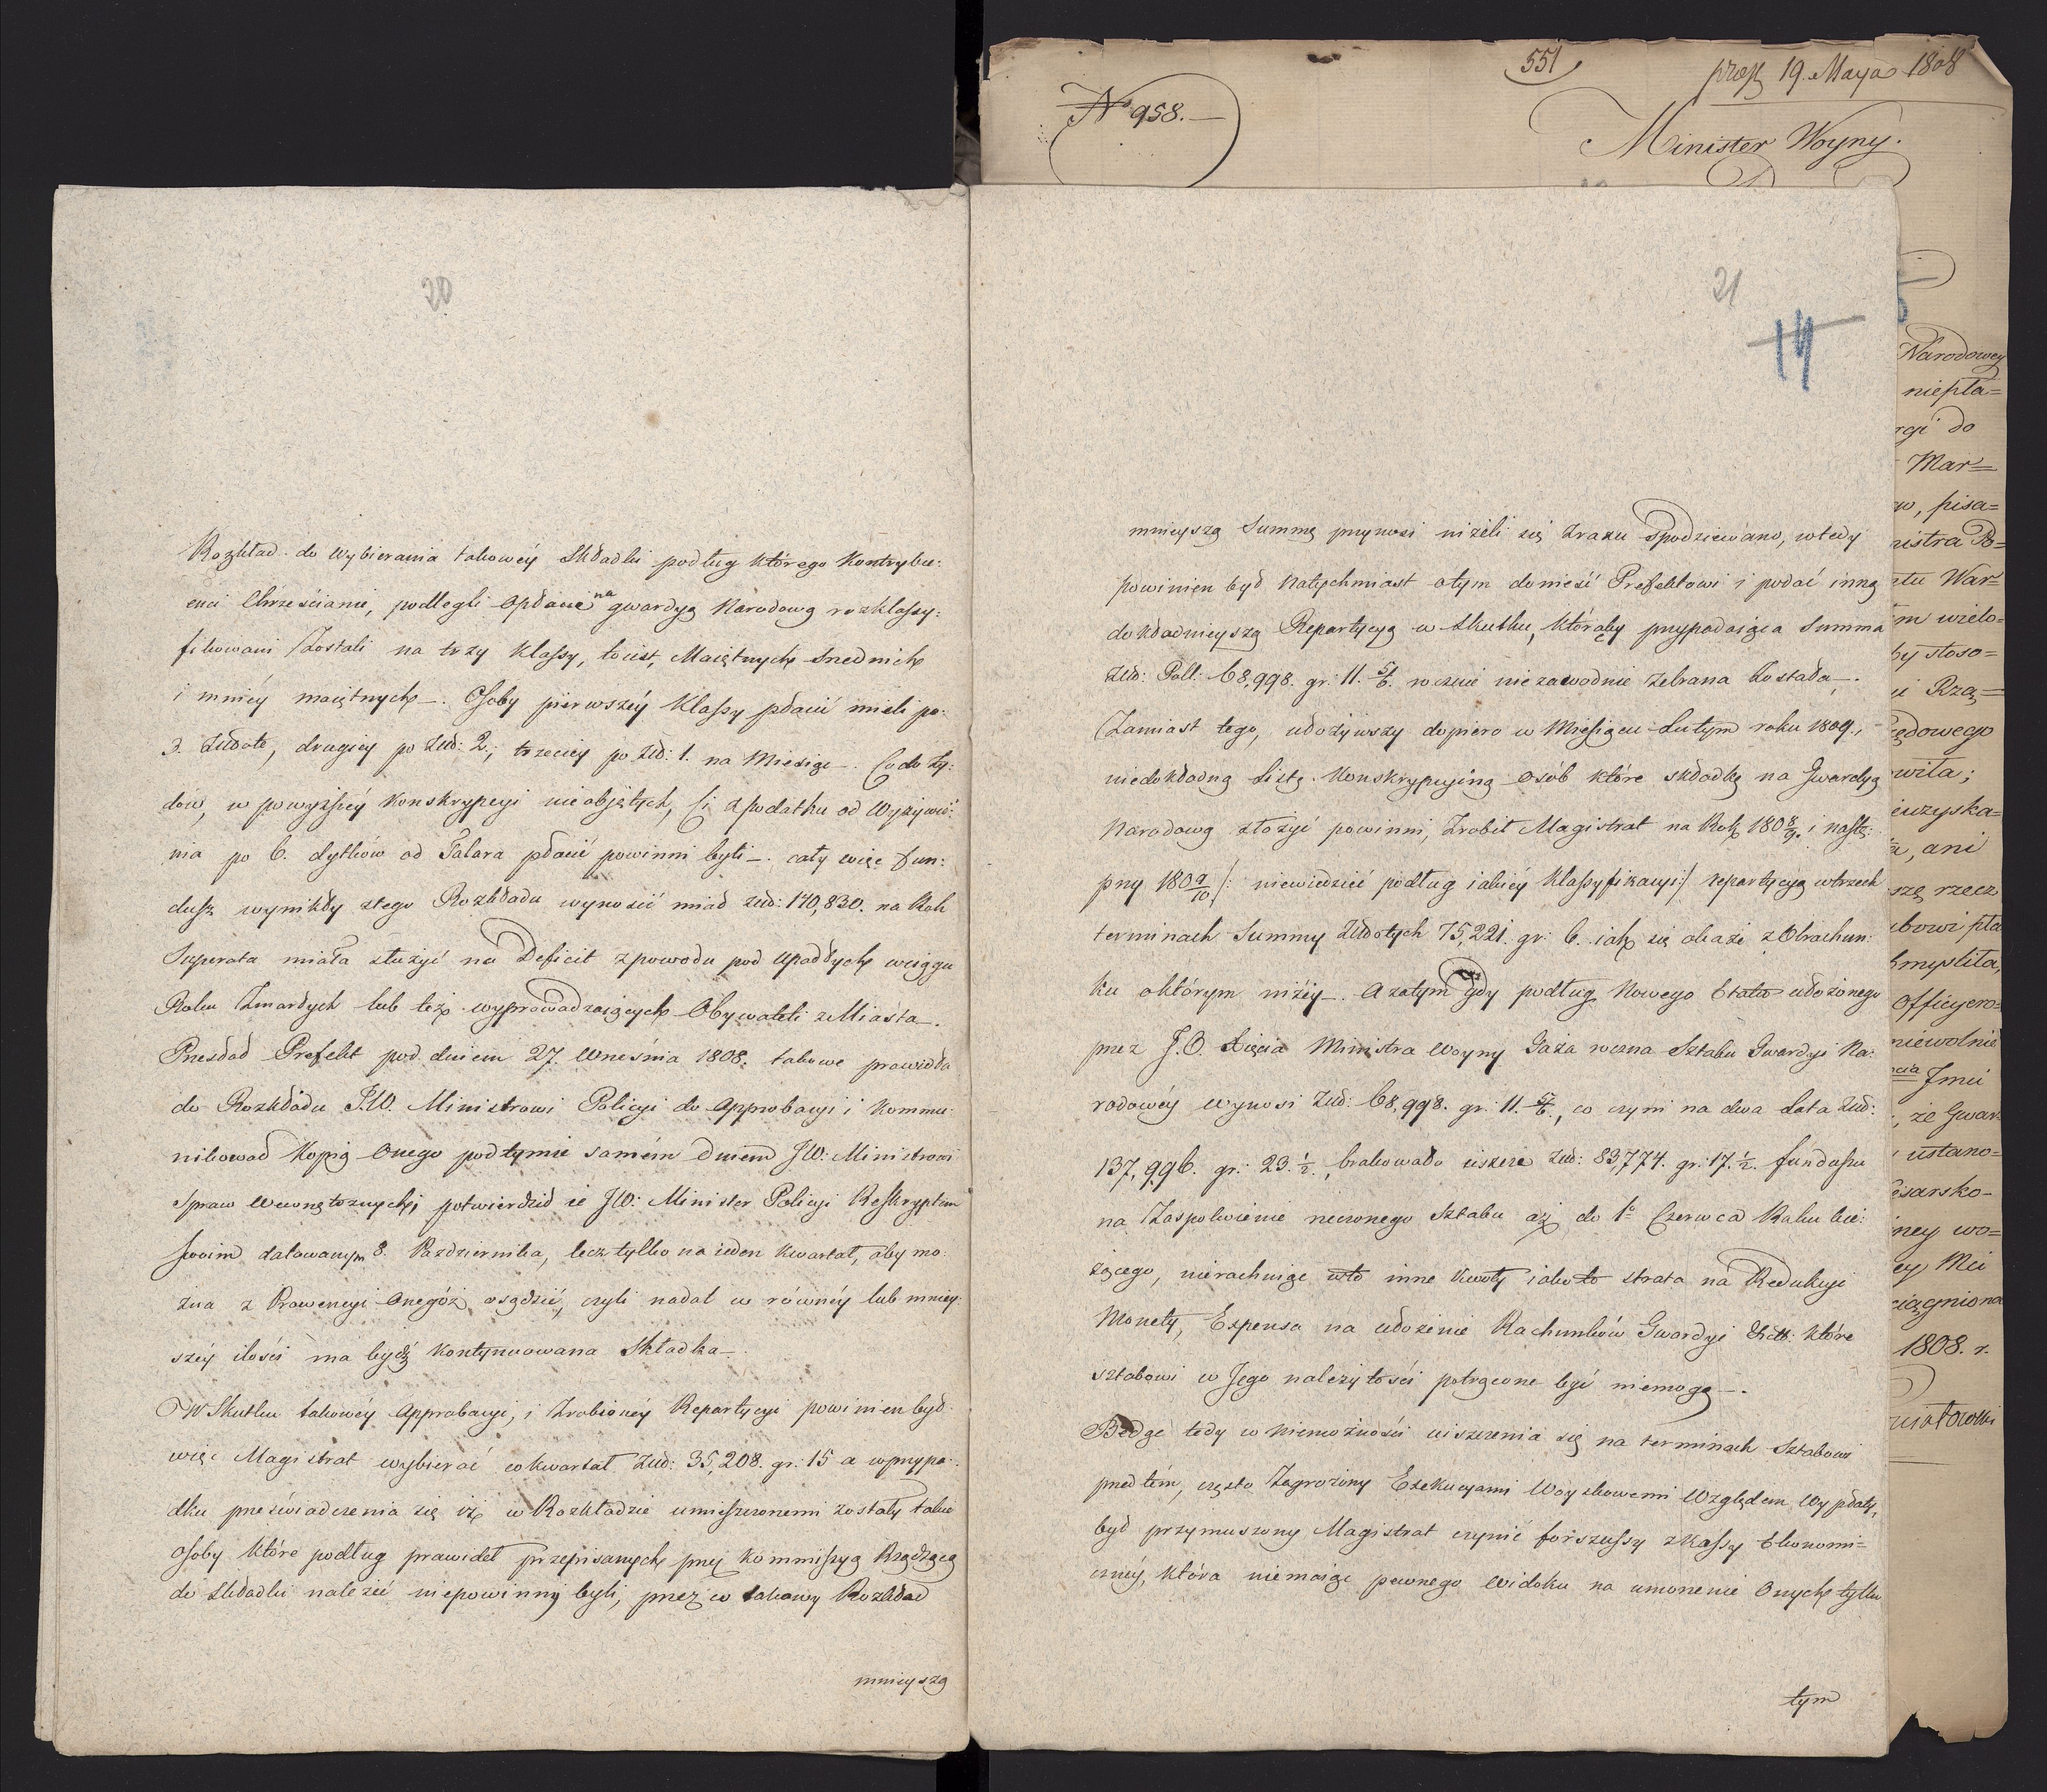 20
Rozkład do wybierania takowéy Składki podług którego Kontrybu:
enci Chrześcianie, podlegli opłacie na gwardyą Narodową rozklassy:
fikowani Zostali na trzy Klassy, to iest, Maiętnych srednich
i mniéy maiętnych —. Osoby pierwszéy Klassy płacić mieli po
3. Złłote, drugiey po Złł: 2., trzeciey po złł: 1. na Miesiąc —. Co do Ży:
dów, w powyższéy Konskrypcyi nieobjętych, Ci z podatku od Wyżywie:
nia po 6. dytków od Talara płacić powinni byli —. cały więc Fun:
dusz wynikły ztego Rozkładu wynosić miał złł: 140,830. na Rok
Superata miała służyć na Deficit zpowodu pod upadłych wciągu
Roku Zmarłych lub też wyprowadzaiących Obywateli z Miasta —.
Przesłał Prefekt pod dniem 27. Września 1808. takowe prawidła
do Rozkładu J.W. Ministrowi Policyi do Approbacyi i kommu:
nikował Kopią Onego podtymże samém dniem JW: Ministrowi
Spraw Wewnętrznych; potwierdził ie JW: Minister Policyi Reskryptem
swoim datowanym 8. Pazdziernika, lecz tylko na ieden Kwartał, aby mo:
żna z Prowencyi Onegóż osądzić, czyli nadal w równéy lub mniey:
széy ilości ma bydź kontynuowana Składka —.
W Skutku takowéy Approbacyi, i Zrobionéy Repartycyi powinien był
więc Magistrat wybierać co kwartał Złł: 35,208. gr: 15 a wprzypa:
dku przeświadczenia się iż w Rozkładzie umieszczonemi zostały takie
osoby które podług prawideł przepisanych przez Kommissyą Rządzącą
do Składki należeć niepowinny byli, przez co takowy Rozkład
mnieyszą
No 958. —
551
19. Maya 1808
Minister Woyny.
21
14
mnieyszą Summę przynosi niżeli się zrazu spodziewano, wtedy
powinien był Natychmiast otym donieść Prefektowi i podać inną
dokładnieyszą Repartycyą w skutku, któréby przypadaiąca Summa
Złł: Poll: 68,998. gr: 11. 5/6. rocznie niezawodnie Zebrana została —.
Zamiast tego, ułożywszy dopiero w Miesiącu Lutym roku 1809.,
niedokładną Listę Konskrypcyiną osób które składkę na Gwardyą
Narodową złożyć powinni, Zrobił Magistrat na Rok 1808/9. i nastę:
pny 1809/10 /: niewiedzieć podług iakiéy Klassyfikacyi :/ repartycyą wtrzech
terminach Summy Złłotych 75,221. gr: 6. iak się okaże z Obrachun:
ku októrym niżéy —. A zatym gdy podług Nowego Etatu ułożonego
przez J.O. Xięcia Ministra Woyny Gaża roczna Sztabu Gwardyi Na:
rodowéy wynosi Złł: 68,998. gr: 11. 5/6., co czyni na dwa Lata Złł:
137,996. gr: 23. 1/2., brakowało ieszcze Złł: 83,774. gr: 17. 1/2. funduszu
na Zaspokoienie rzeczonego Sztabu aż do 1o Czerwca Roku bie:
żącego, nierachuiąc wto inne kwoty iako to strata na Redukcyi
Monety, Expensa na ułożenie Rachunków Gwardyi które
sztabowi w Jego należytości potrącone być niemogą —.
Będąc tedy w Niemożności uiszczenia się na terminach Sztabowi
przed tém, często Zagrożony Exekucyami Woyskowemi Względem Wypłaty,
był przymuszony Magistrat czynić forszussy z Kassy Ekonomi=
cznéy, która niemaiąc pewnego widoku na umorzenie Onych tylko
tym
Narodowey
niepła=
rgi do
Mar=
pisa=
nistra Po=
War=
wielo=
stoso=
Rzą=
ędowego
wiła;
ani
rzecz
myśliła,
Officyero=
niewolnie
Jmci
że Gwar=
ustano=
esarsko=
wo=
Mci
ciągniona
1808. r.